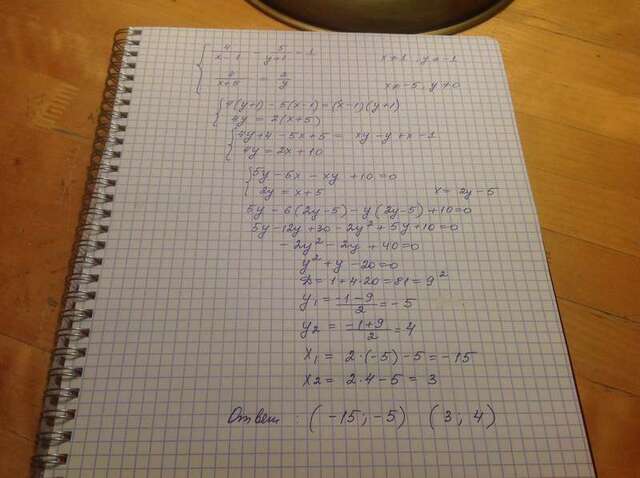 4/(x-1) - 5/(y+1) = 1 x≠1, y≠-1
4/(x+5) = 2/y x≠-5, y≠0
4(y+1) - 5(x-1) = (x-1)(y+1)
4y = 2(x+5)
4y+4 - 5x+5 = xy-y+x-1
4y = 2x+10
5y - 6x - xy + 10=0
2y = x+5 x= 2y-5
5y - 6(2y-5) - y(2y-5) +10=0
5y-12y+30-2y²+5y+10=0
-2y²-2y+40=0
y²+y-20=0
D=1+4·20=81=9²
y1 = (-1-9)/2 = -5
y2 = (-1+9)/2 = 4
x1 = 2·(-5)-5=-15
x2 = 2·4-5 = 3
Ответ: (-15; -5) (3; 4)